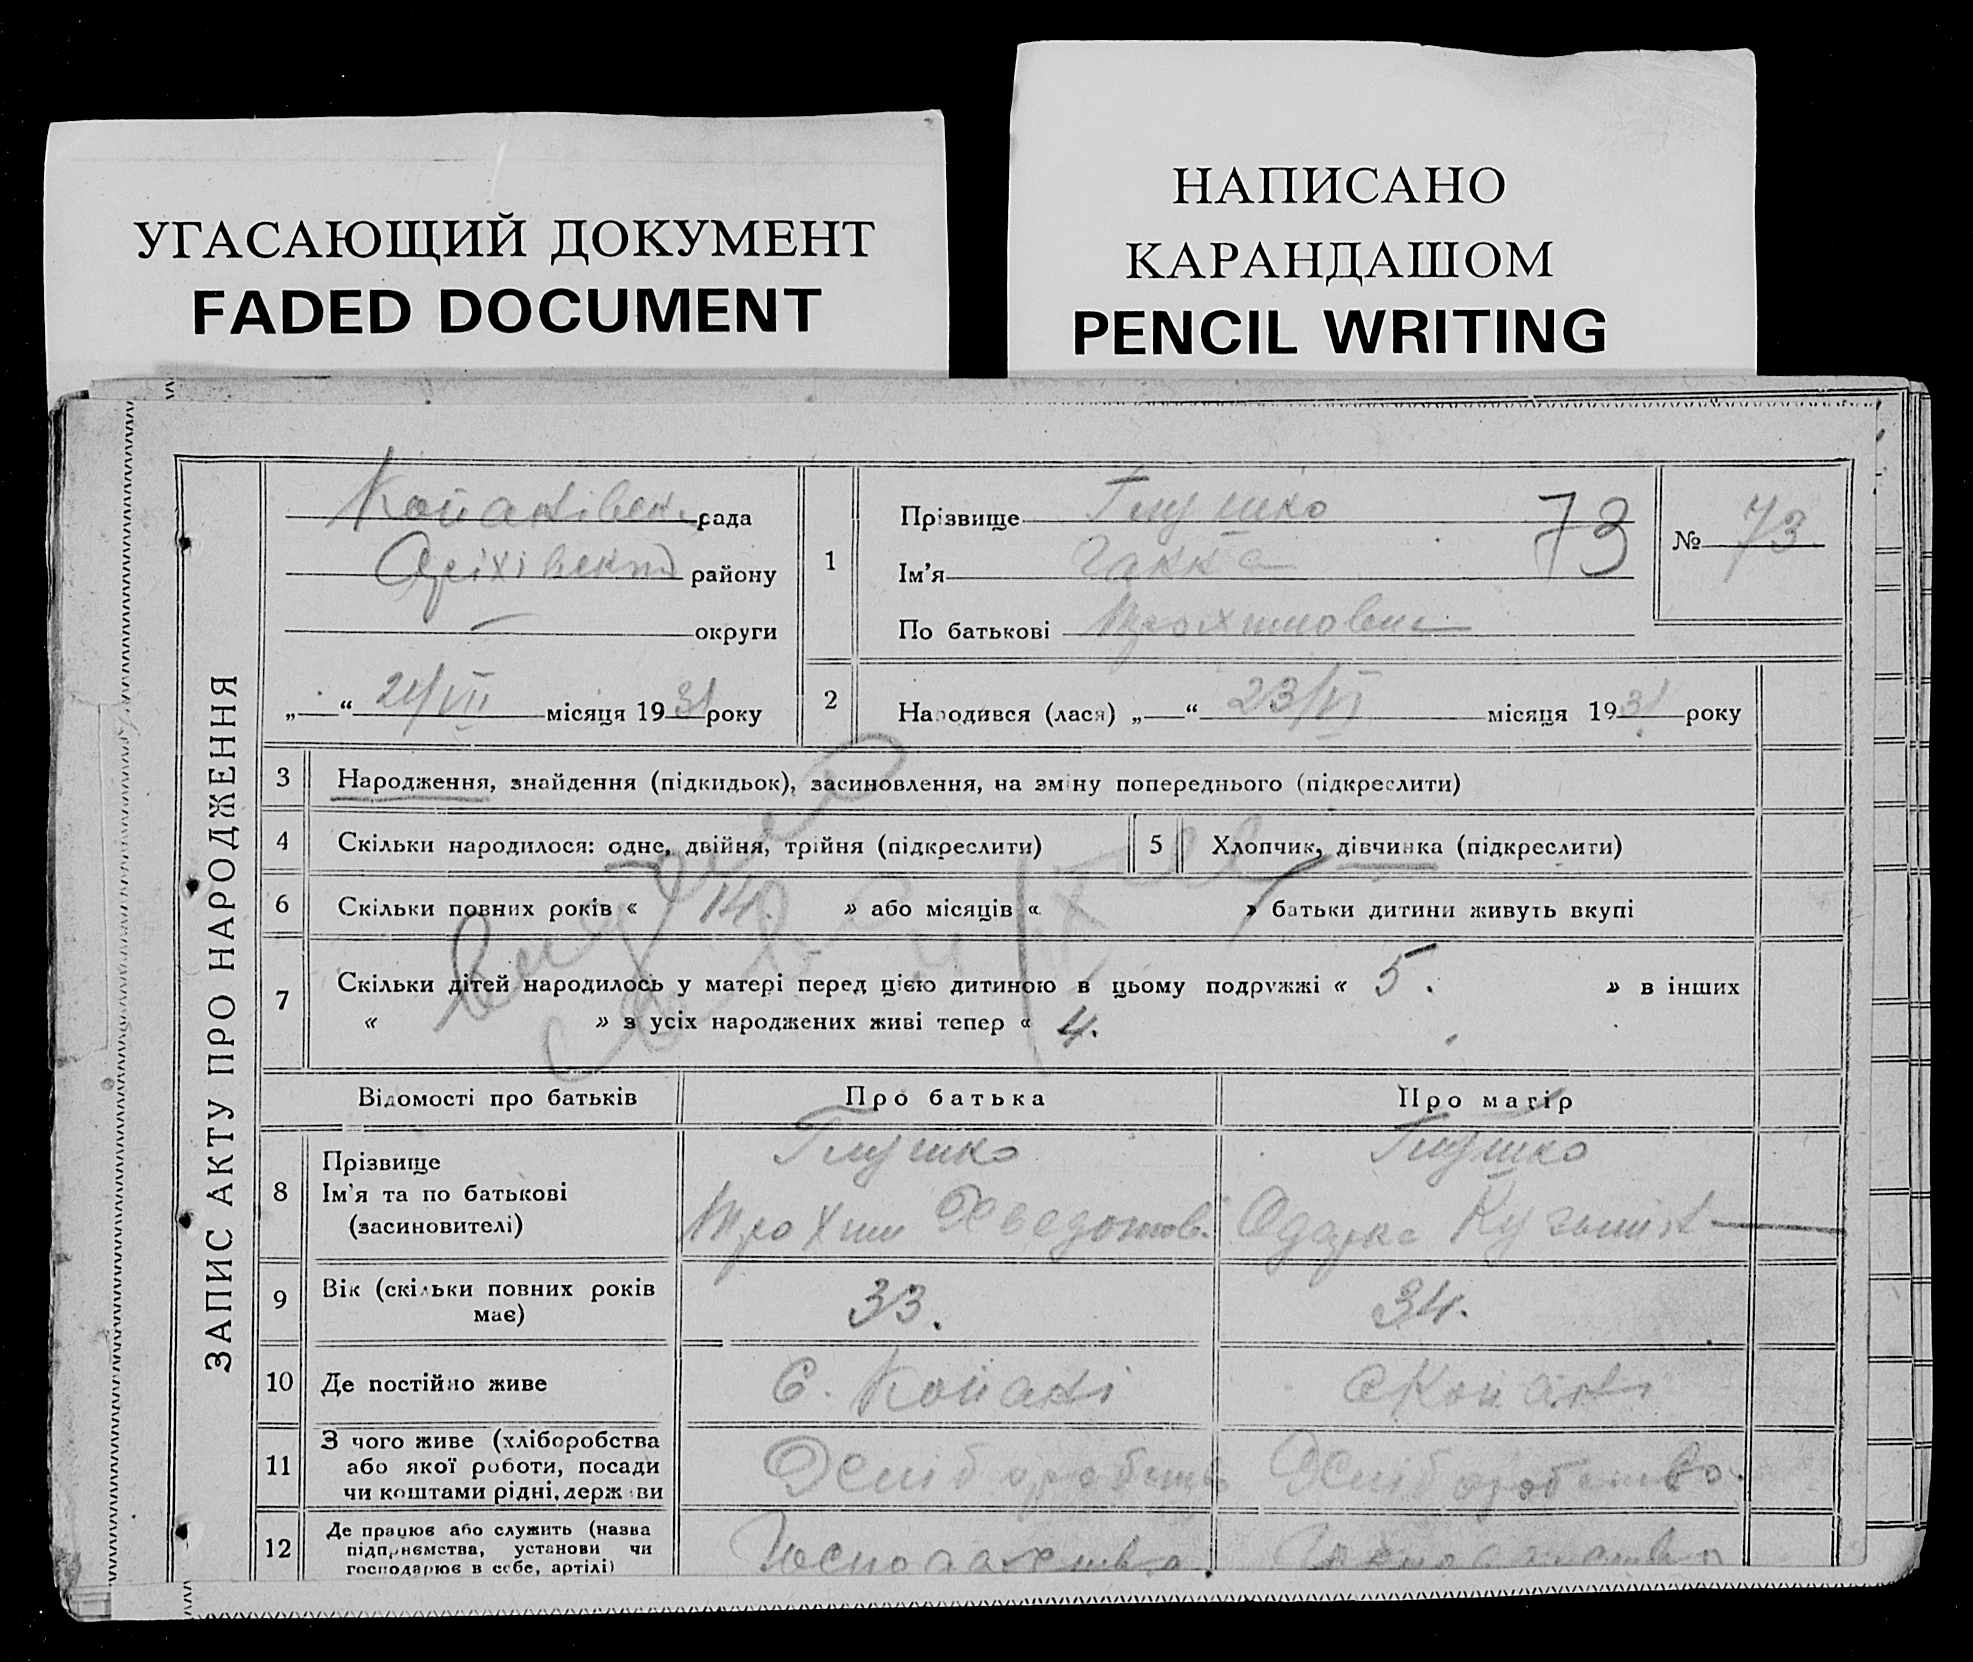 УГАСАЮЩИЙ ДОКУМЕНТ
FADED DOCUMENT
НАПИСАНО
КАРАНДАШОМ
PENCIL WRITING
ЗАПИС АКТУ ПРО НАРОДЖЕННЯ
рада
району
округи
„ “ 21/VII місяця 1931 року
1
Прізвище Глушко 73
Ім’я
По батькові
№ 73.
2
Народився (лася) „ “ 23/VI місяця 1931 року
3 Народження, знайдення (підкидьок), засиновлення, на зміну попереднього (підкреслити)
4 Скільки народилося: одне, двійня, трійня (підкреслити)
5 Хлопчик, дівчинка (підкреслити)
6 Скільки повних років « 14. » або місяців « » батьки дитини живуть вкупі
7 Скільки дітей народилось у матері перед цією дитиною в цьому подружжі « 5. » в інших
« » з усіх народжених живі тепер « 4.
Відомості про батьків Про батька Про матір
8 Прізвище
Ім’я та по батькові
(засиновителі)
Глушко
Трохим Хведотов.
Глушко
Одарка
9 Вік (скільки повних років
має)
33. 34.
10 Де постійно живе
с. Копані с Копані
11 З чого живе (хліборобства
або якої роботи, посади
чи коштами рідні, держави
Хліборобств Хліборобство.
12 Де працює або служить (назва
підприємства, установи чи
господарює в себе, артілі)